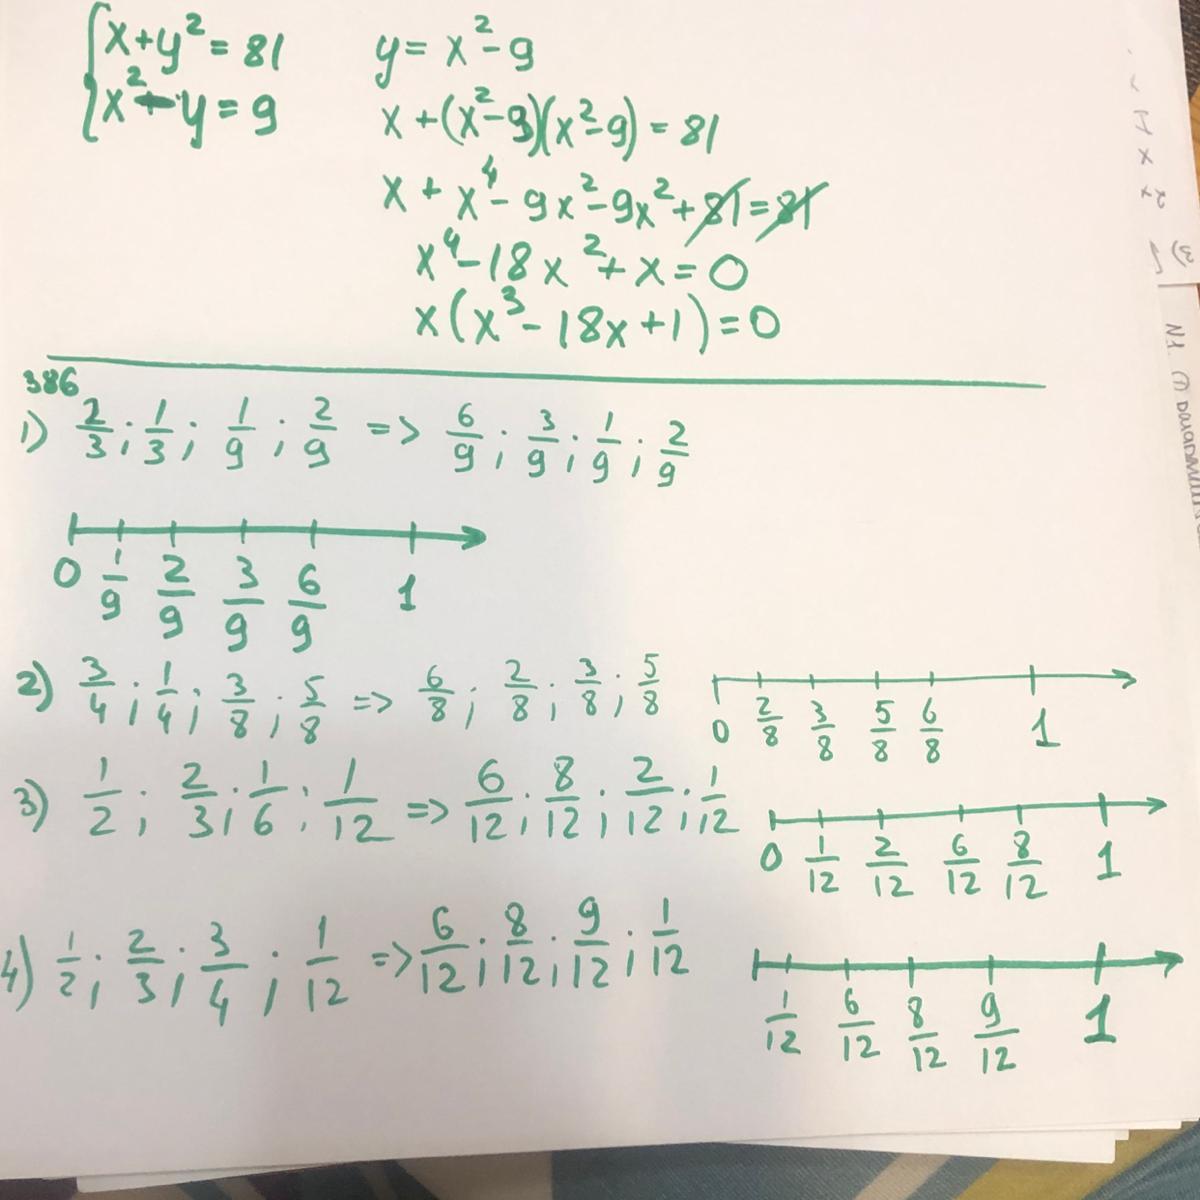 x+y²=81
x²-y=9
y=x²-9
x+(x²-9)(x²-9)=81
x+x⁴-9x²-9x²+81=81
x⁴-18x²+x=0
x(x³-18x+1)=0
386
1) 2/3; 1/3; 1/9; 2/9 => 6/9; 3/9; 1/9; 2/9
0 1/9 2/9 3/9 6/9 1
2) 3/4; 1/4; 3/8; 5/8 => 6/8; 2/8; 3/8; 5/8
0 2/8 3/8 5/8 6/8 1
3) 1/2; 2/3; 1/6; 1/12 => 6/12; 8/12; 2/12; 1/12
0 1/12 2/12 6/12 8/12 1
4) 1/2; 2/3; 3/4; 1/12 => 6/12; 8/12; 9/12; 1/12
1/12 6/12 8/12 9/12 1